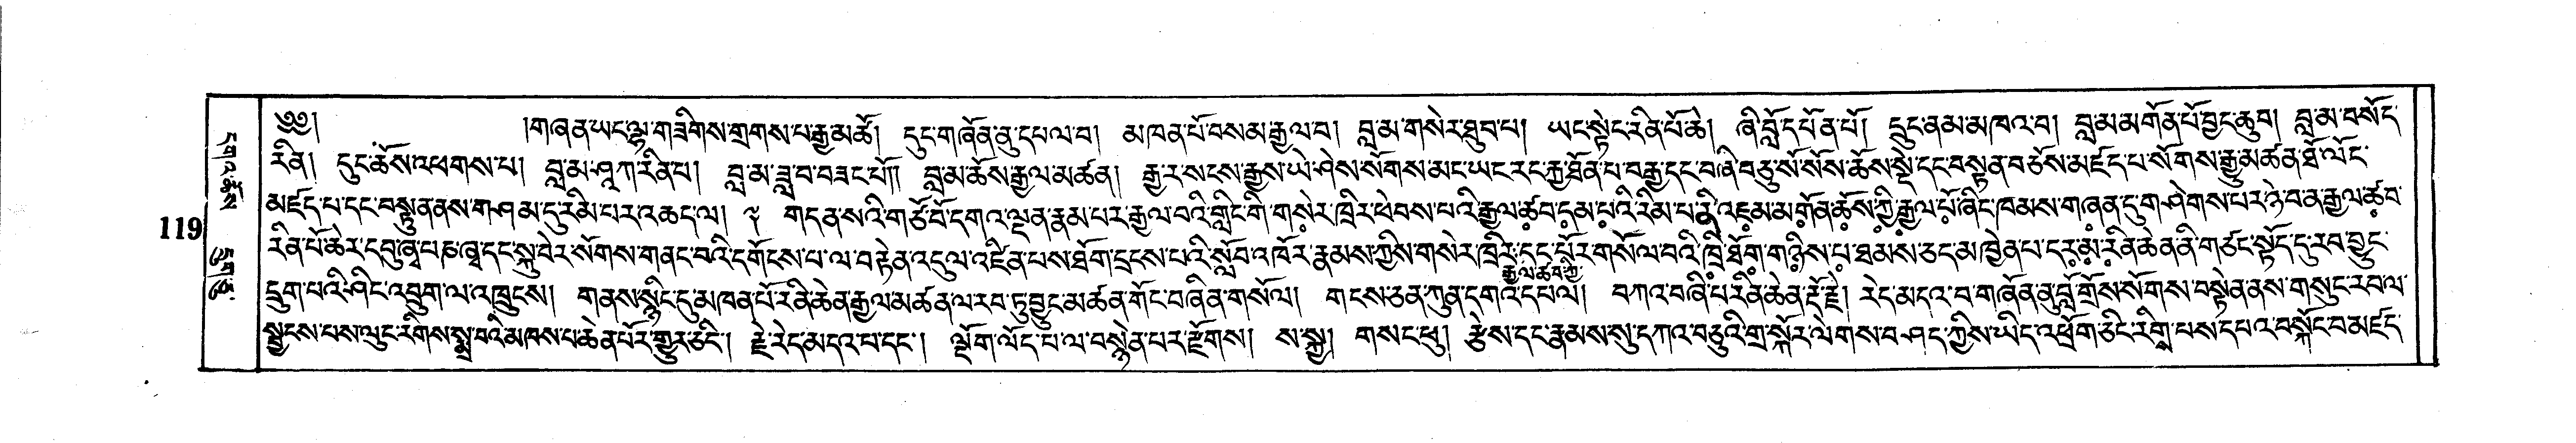 ༄༅། །གཞན་ཡང་ལྷ་གཟིགས་གྲགས་པ་རྒྱ་མཚོ། དུང་གཞོན་ནུ་དཔལ་བ། མཁན་པོ་བསམ་རྒྱལ་བ། བླ་མ་གསེར་ཐུབ་པ། ཡང་སྟེང་རིན་པོ་ཆེ། ཞི་བློ་དཔོན་པོ། དྲུང་ནམ་མཁའ་བ། བླ་མ་མགོན་པོ་བྱང་ཆུབ། བླ་མ་བསོད་
རིན། དུང་ཆོས་འཕགས་པ། བླ་མ་ཤཱཀ་རིན་པ། བླ་མ་ཟླ་བ་བཟང་པོ། བླ་མ་ཆོས་རྒྱལ་མཚན། རྒྱ་ར་སངས་རྒྱས་ཡེ་ཤེས་སོགས་མང་ཡང་རང་རྐྱ་ཐོན་པ་བརྒྱ་དང་བཞི་བཅུ་སོ་སོས་ཆོས་སྡེ་དང་བསྟན་བཅོས་མཛད་པ་སོགས་རྒྱུ་མཚན་ཐོ་ལོང་
མཛད་པ་དང་བསྟུན་ནས་གཤམ་དུ་རིམ་པར་འཆད་ལ། ༡ གདན་ས་འི་གཙོ་བོ་དགའ་ལྡན་རྣམ་པར་རྒྱལ་བའི་གླིང་གི་གསེར་ཁྲིར་ཕེབས་པའི་རྒྱལ་ཚབ་དམ་པའི་རིམ་པ་ནི་འཇམ་མགོན་ཆོས་ཀྱི་རྒྱལ་པོ་ཞིང་ཁམས་གཞན་དུ་གཤེགས་པར་ཉེ་བ་ན་རྒྱལ་ཚབ་
རིན་པོ་ཆེར་དབུ་ཞྭ་པཎ་ཞྭ་དང་སྐུ་བེར་སོགས་གནང་བའི་དགོངས་པ་ལ་བརྟེན་འདུལ་འཛིན་པས་ཐོག་དྲངས་པའི་སློབ་འཁོར་རྣམས་ཀྱིས་གསེར་ཁྲིར་དང་པོར་གསོལ་བའི་ཁྲི་ཐོག་གཉིས་པ་ཐམས་ཅད་མཁྱེན་པ་དར་མ་རིན་ཆེན་ནི་གཙང་སྟོད་དུ་རབ་བྱུང་
རྒྱལ་ཚབ་ཀྱི
དྲུག་པའི་ཤིང་འབྲུག་ལ་འཁྲུངས། གནས་སྙིང་དུ་མཁན་པོ་རིན་ཆེན་རྒྱལ་མཚན་ལ་རབ་ཏུ་བྱུང་མཚན་གོང་བཞིན་གསོལ། གངས་ཅན་ཀུན་དགའ་དཔལ། བཀའ་བཞི་པ་རིན་ཆེན་རྡོ་རྗེ། རེད་མདའ་བ་གཞོན་ནུ་བློ་གྲོས་སོགས་བསྟེན་ནས་གསུང་རབ་ལ་
སྦྱངས་པས་ལུང་རིགས་སྨྲ་བའི་མཁས་པ་ཆེན་པོར་གྱུར་ཅིང་། རྗེ་རེད་མདའ་པ་དང་། ལྡོག་ལོད་པ་ལ་བསྙེན་པར་རྫོགས། ས་སྐྱ། གསང་ཕུ། རྩེས་དང་རྣམས་སུ་དཀའ་བཅུའི་གྲ་སྐོར་ལེགས་བཤད་ཀྱིས་ཡིད་འཕྲོག་ཅིང་རིག་པས་དཔའ་བསྐོང་བ་མཛད་
119